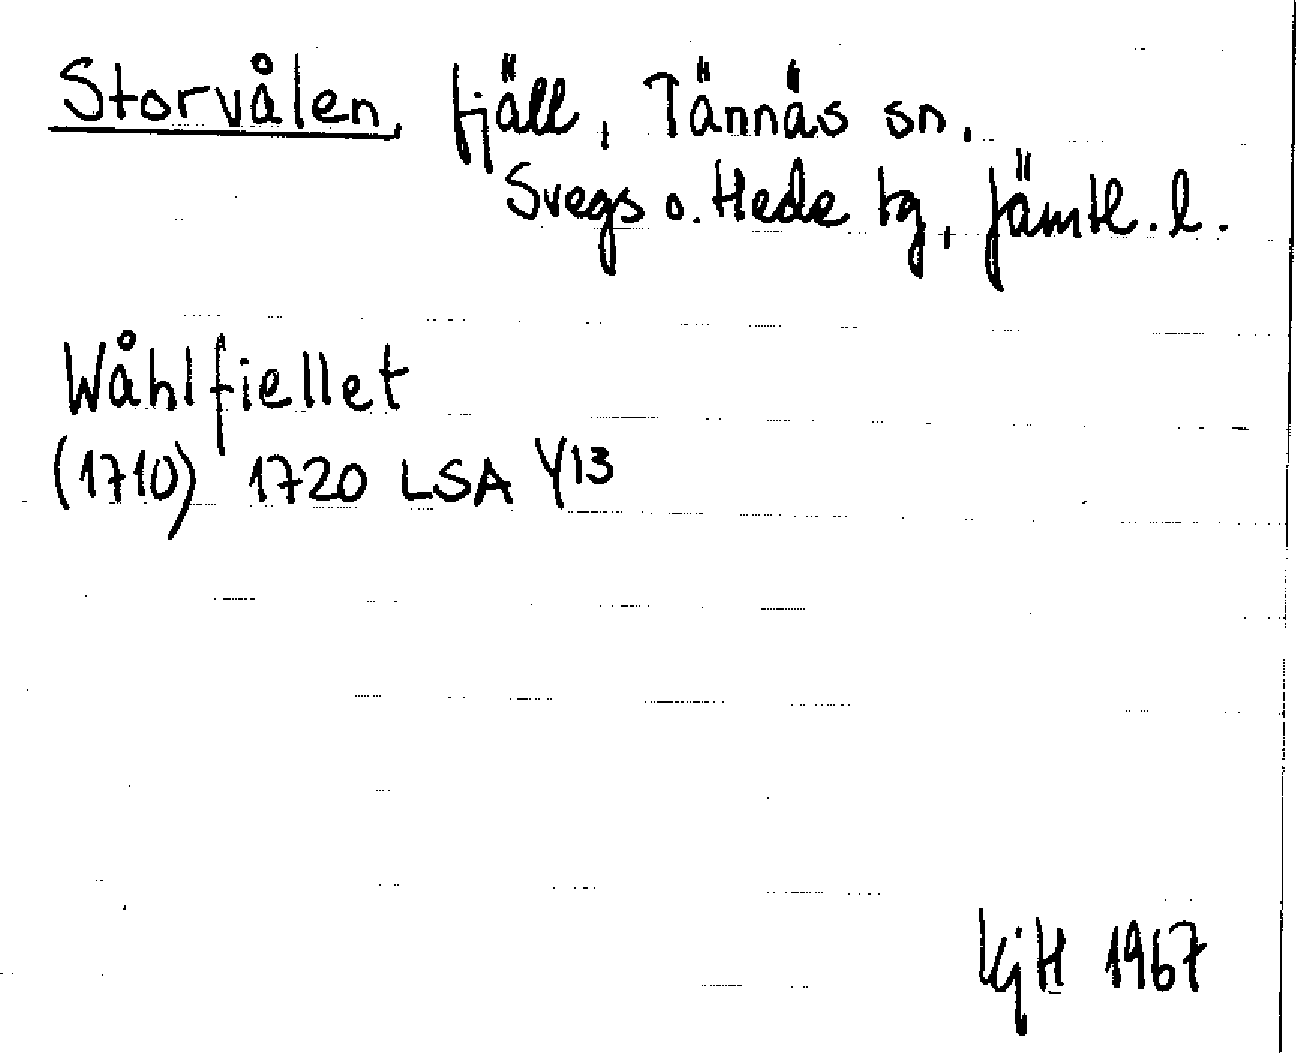 Storvålen, fjäll, Tännäs sn.
Svegs o. Hede tg, Jämtl. l.
Wåhlfiellet
(1710) 1720 LSA Y13
KjH 1967